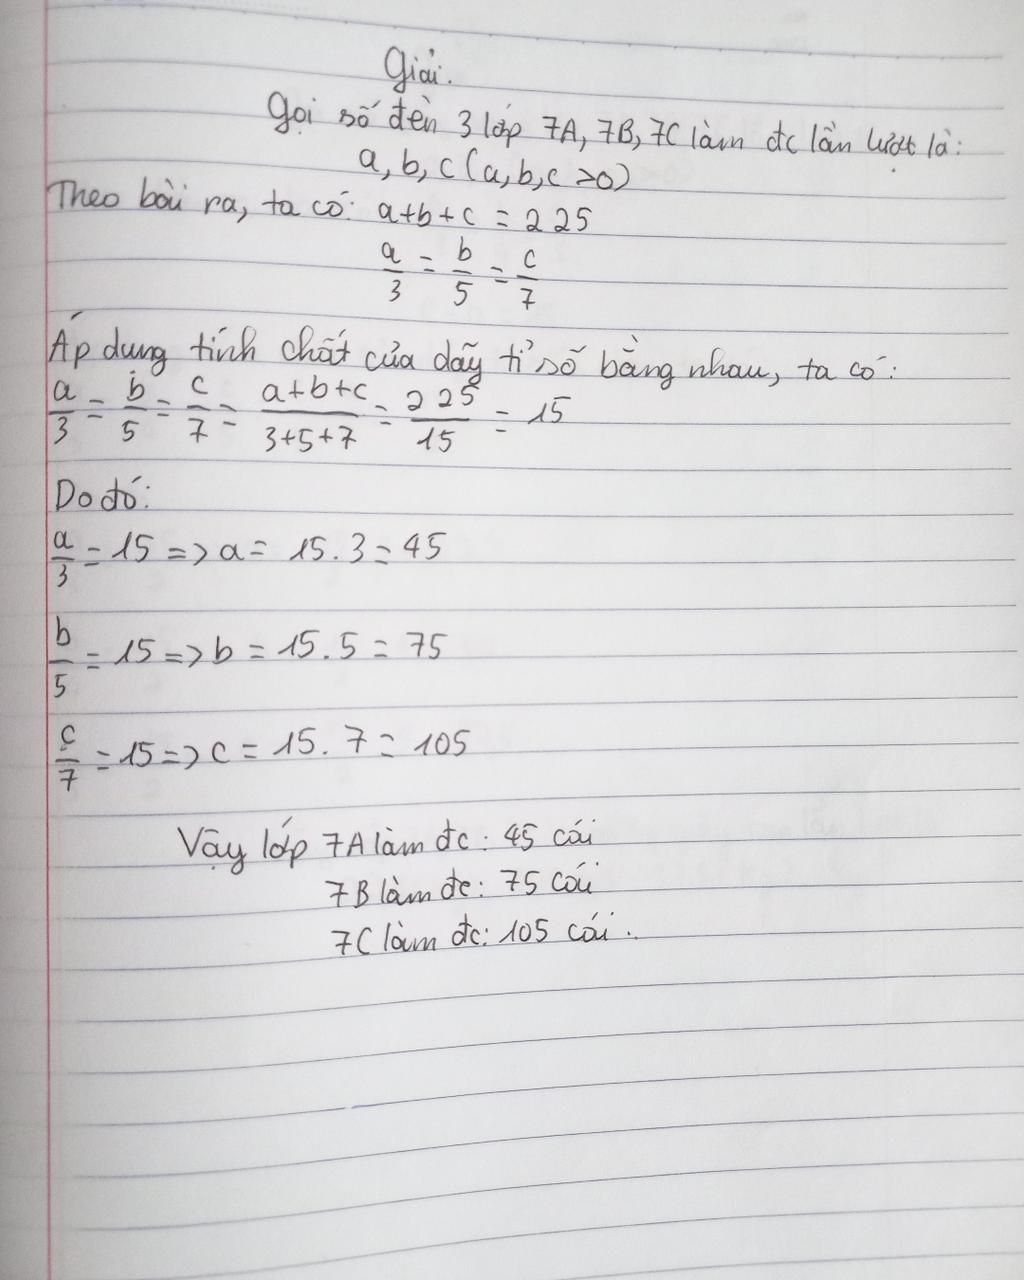 Giải.
Gọi số đèn 3 lớp 7A, 7B, 7C làm đc lần lượt là:
a, b, c (a, b, c > 0)
Theo bài ra, ta có: a + b + c = 225
a/3 = b/5 = c/7
Áp dung tính chất của dãy tỉ số bằng nhau, ta có:
a/3 = b/5 = c/7 = (a+b+c)/(3+5+7) = 225/15 = 15
Do đó:
a/3 = 15 => a = 15 . 3 = 45
b/5 = 15 => b = 15 . 5 = 75
c/7 = 15 => c = 15 . 7 = 105
Vậy lớp 7A làm đc : 45 cái
7B làm đc : 75 cái
7C làm đc : 105 cái .